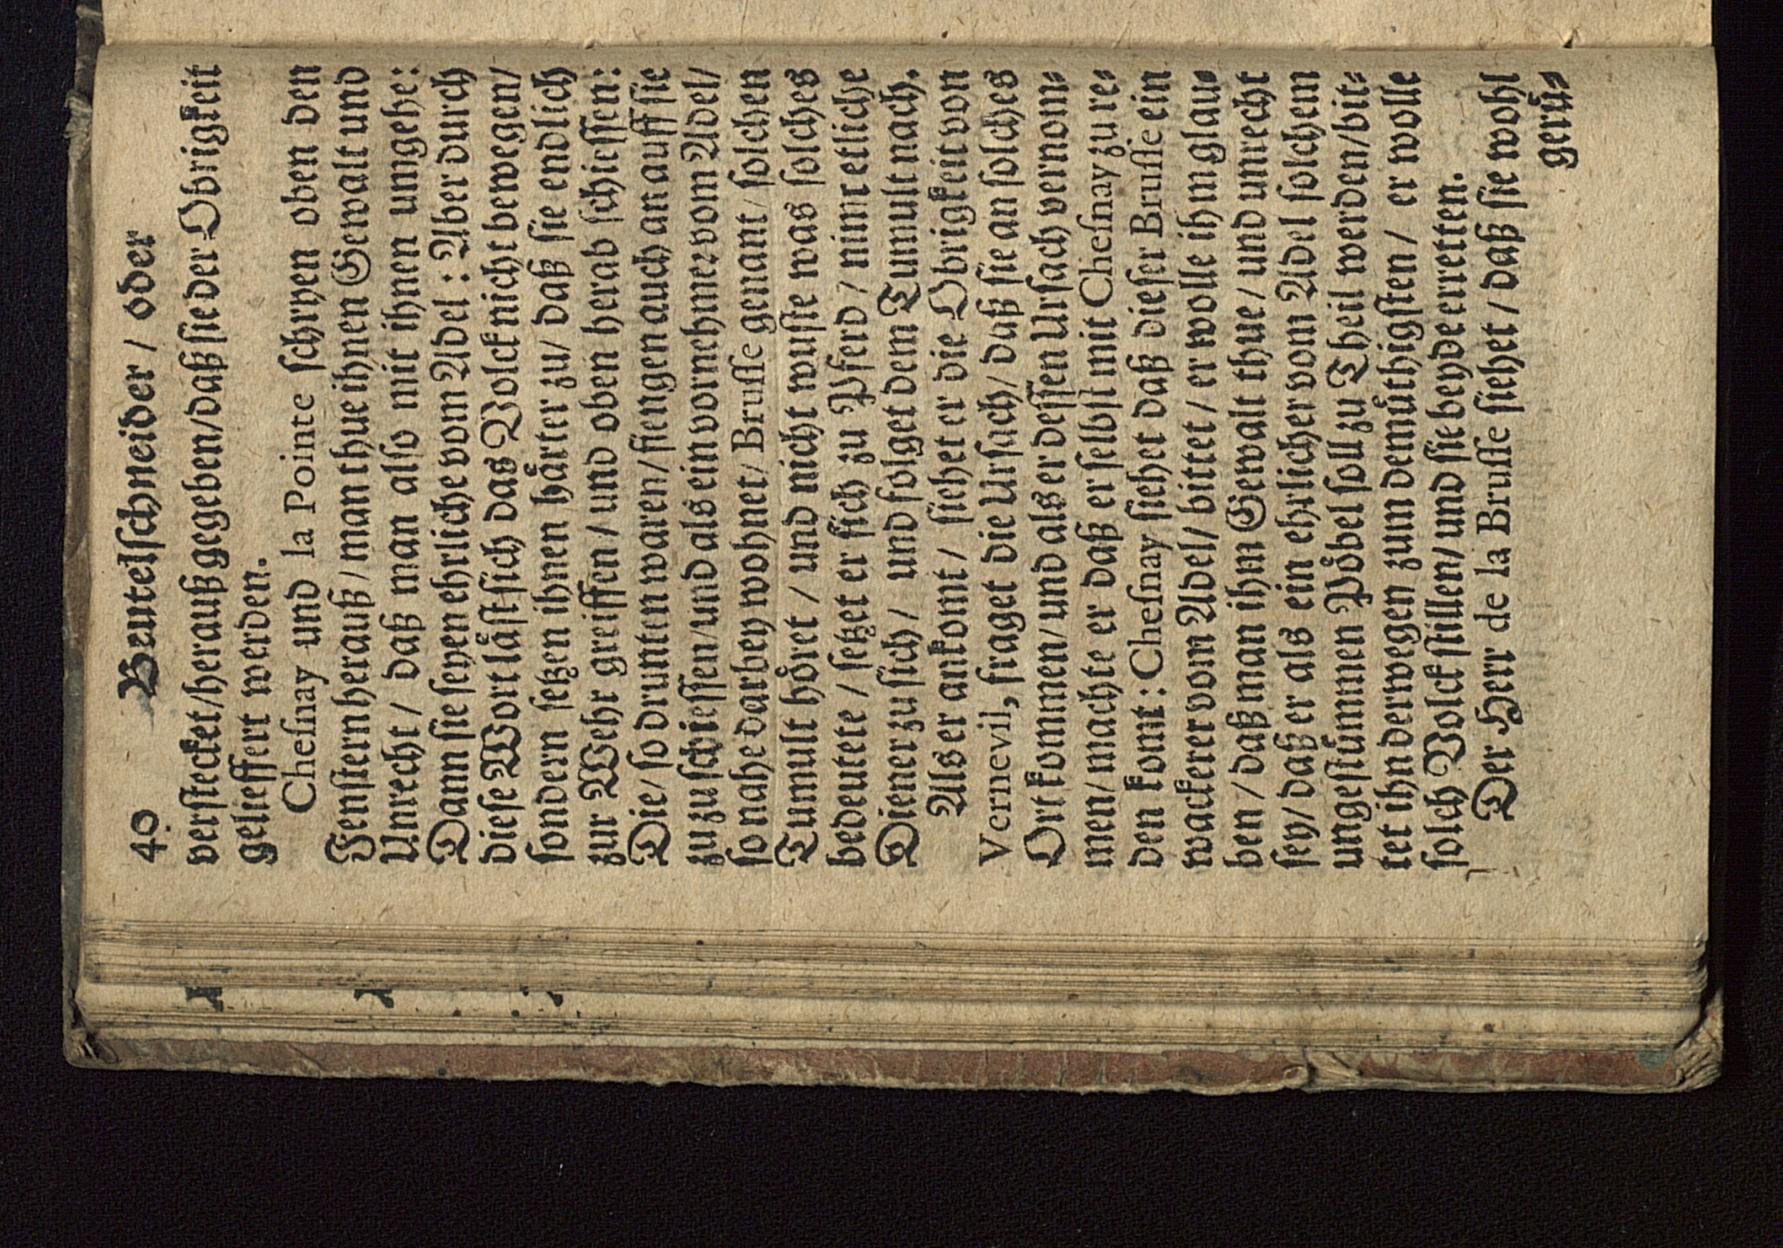 40 Beutelſchneider / oder
verſtecket/herauß gegeben/daß ſie der Obrigkeit
gelieffert werden.
Cheſnay und la Pointe ſchryen oben den
Fenſtern herauß / man thue ihnen Gewalt und
Unrecht / daß man alſo mit ihnen umgehe:
Dann ſie ſeyen ehrliche vom Adel : Aber durch
dieſe Wort låſt ſich das Volck nicht bewegen/
ſondern ſetzen ihnen hårter zu/ daß ſie endlich
zur Wehr greiffen / und oben herab ſchieſſen:
Die/ ſo drunten waren/ fiengen auch an auff ſie
zu zu ſchieſſen/und als ein vornehmer vom Adel/
ſo nahe darbey wohnet/ Bruſſe genant/ ſolchen
Tumult hôret / und nicht wuſte was ſolches
bedeutete / ſetzet er ſich zu Pferd / nimt etliche
Diener zu ſich / und folget dem Tumult nach.
Als er ankomt / ſiehet er die Obrigkeit von
Vernevil, fraget die Urſach/ daß ſie an ſolches
Ort kommen/ und als er deſſen Urſach vernom⸗
men/ machte er daß er ſelbſt mit Cheſnay zu re⸗
den komt : Cheſnay ſiehet daß dieſer Bruſſe ein
wackerer vom Adel/ bittet / er wolle ihm glau⸗
ben / daß man ihm Gewalt thue / und unrecht
ſey/ daß er als ein ehrlicher vom Adel ſolchem
ungeſtůmmen Pôbel ſoll zu Theil werden/bit⸗
tet ihn derwegen zum demůthigſten / er wolle
ſolch Volck ſtillen/ und ſie beyde erretten.
Der Herr de la Bruſſe ſiehet / daß ſie wohl
gerů⸗